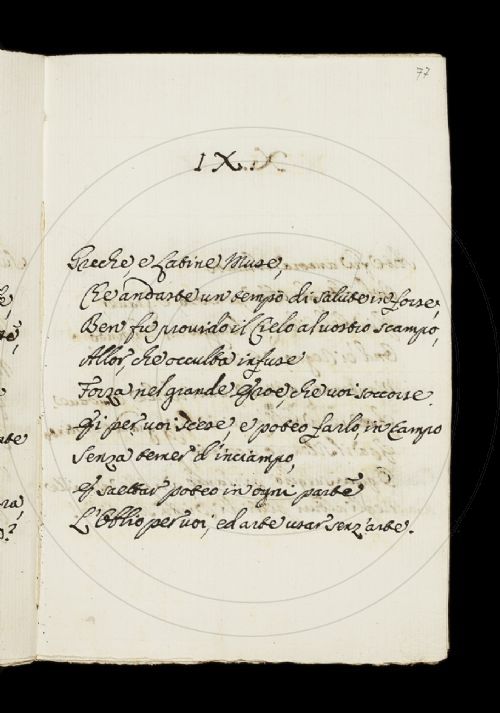 77
IX.
Greche, e Latine Muse,
Che andaste un tempo di salute in forse,
Ben fu provido il Cielo al vostro scampo,
Allor, che occulta infuse
Forza nel grande Eroe, che voi soccorse.
Ei per voi scese, e poteo farlo, in Campo
Senza temer d'inciampo,
E saettar poteo in ogni parte
L'Oblio per voi, ed arte usar senz'arte.